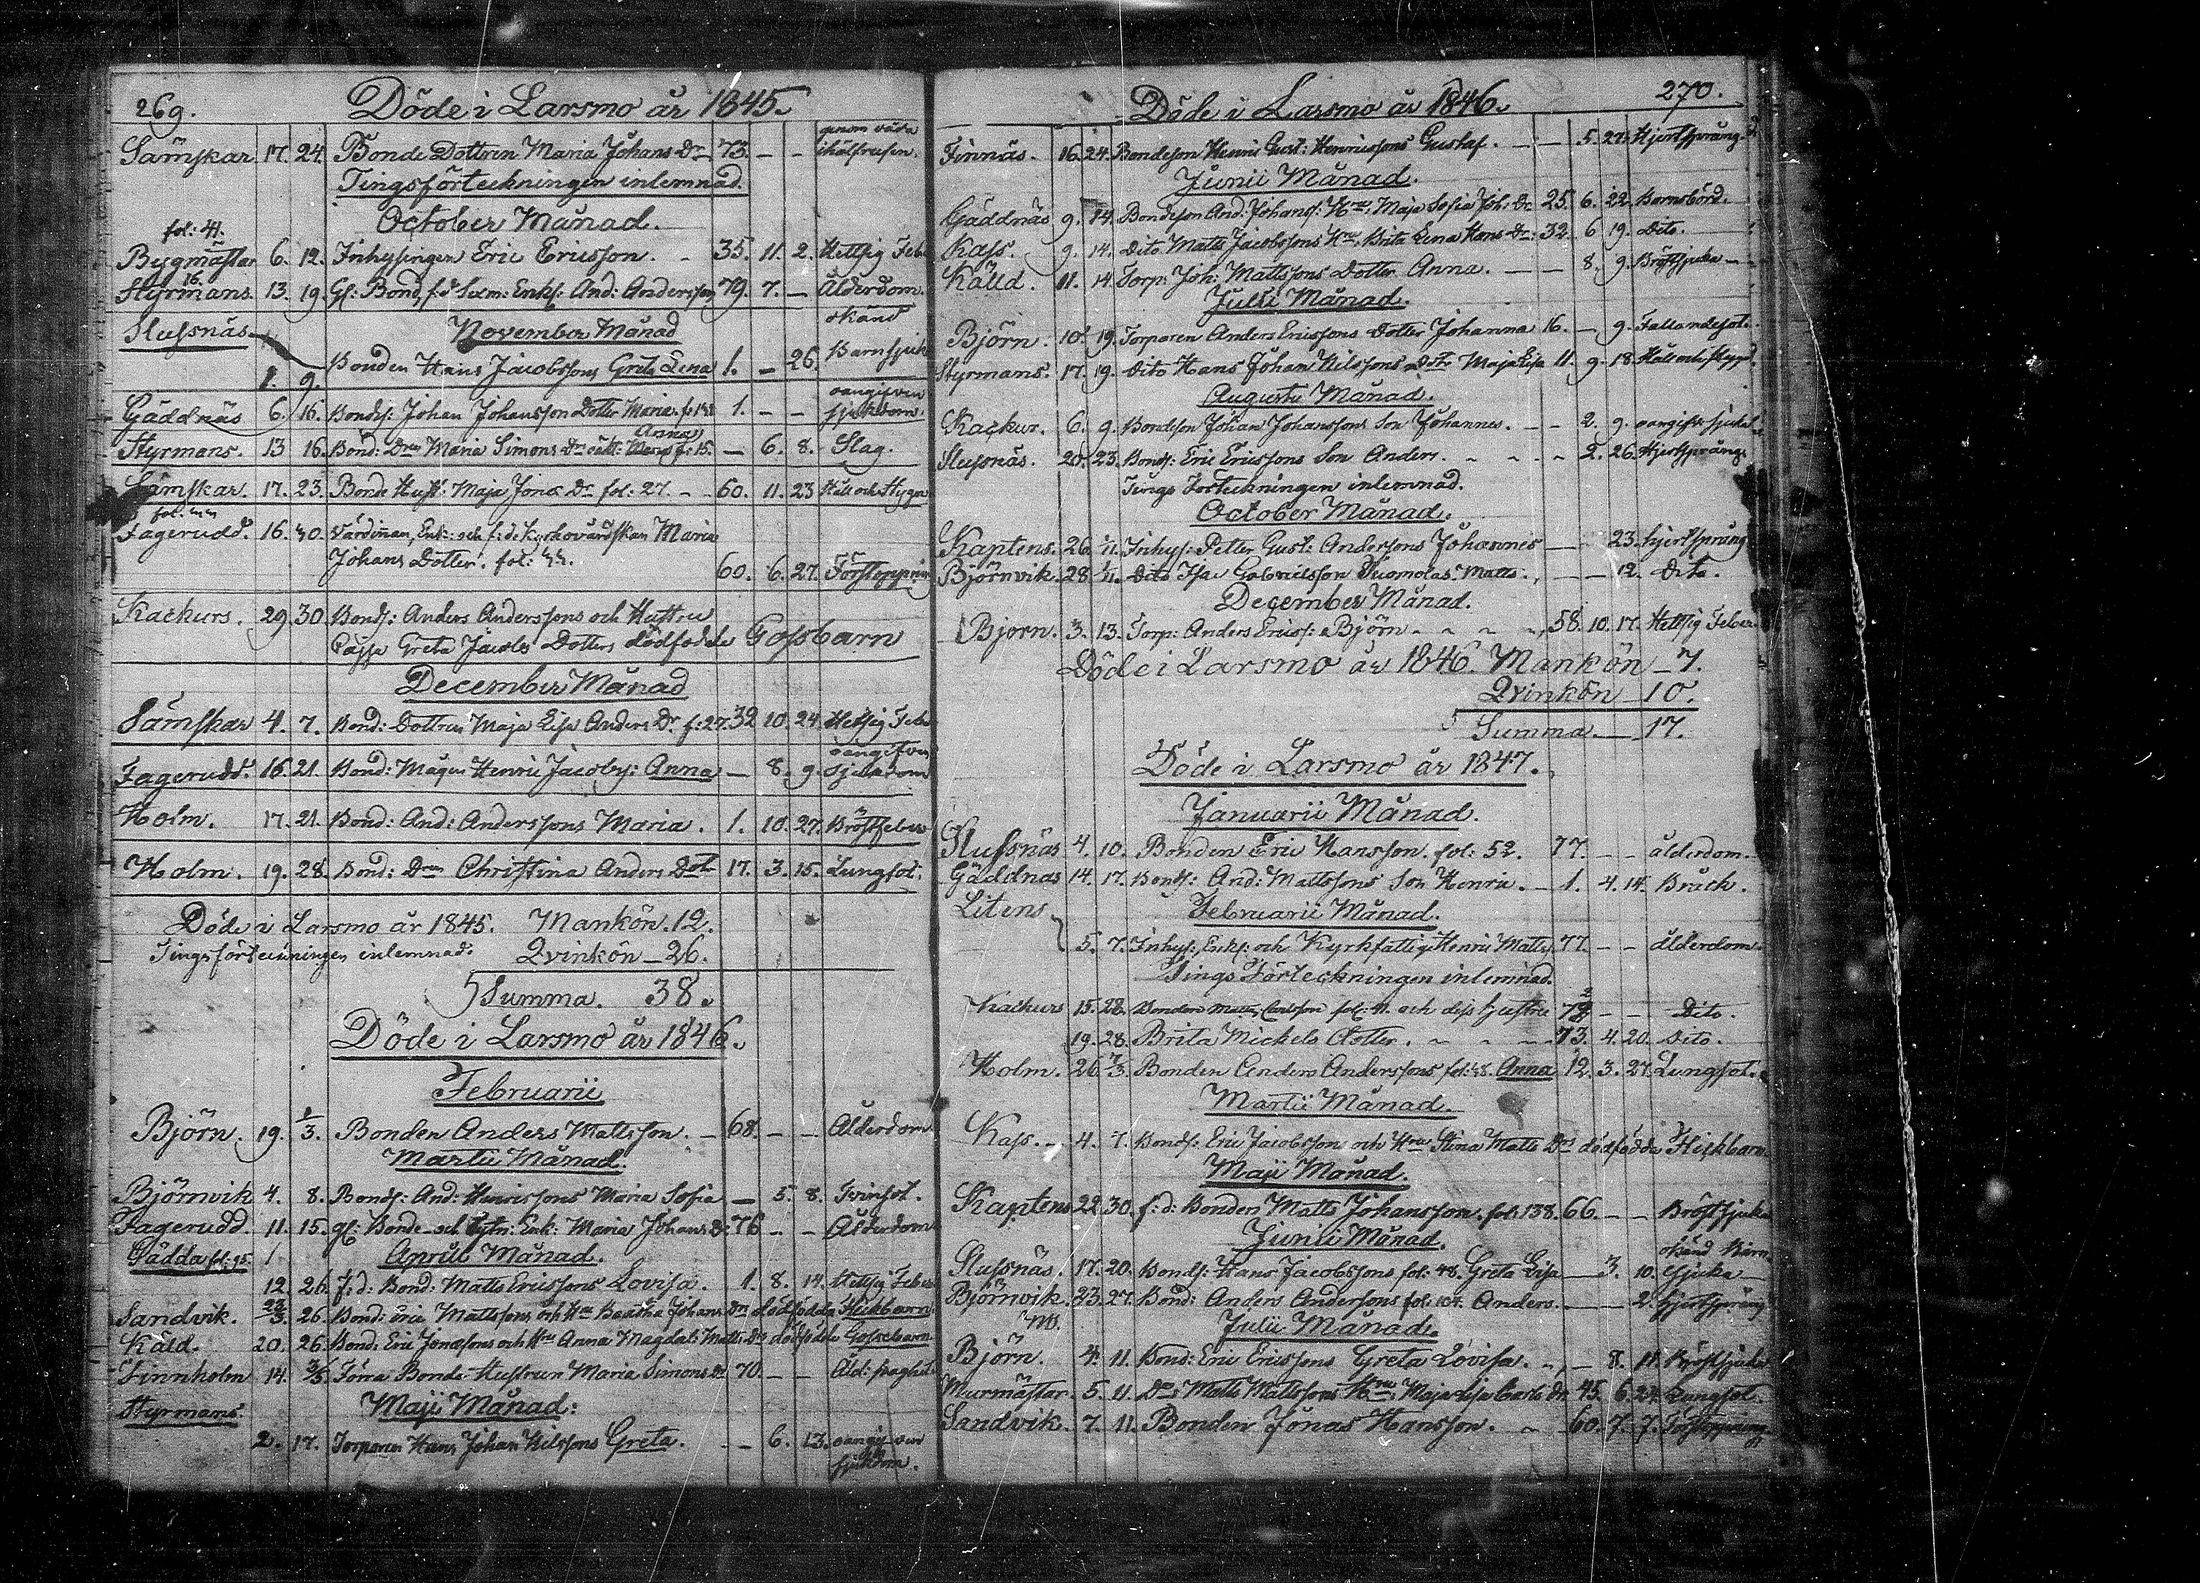 269. Döde i Larsmo år 1845.
Sämskar 17. 24. Bonde Dottren Maria Johans Dr 73. — — genom våda
ihälfrusen.
Tingsförteckningen inlemnad.
October Månad.
fol: 41.
Bygmästar 6. 12. Inhysingen Eric Ericsson. - 35. 11. 2. Hettsig Feb
16.
Styrmans. 13. 19. Gl: Bond, f:d Sexm: Enkl: And: Andersson 79. 7. — Ålderdom.
Slussnäs. November Månad okänd
1. 9. Bonden Hans Jacobssons Greta Lena 1. — 26. Barnsjuk
Gäddnäs 6. 16. Bondes: Johan Johansson Dotter Maria. 1. — — oangifven
sjukdom.
Anna
Styrmans. 13 16. Bond: Drn Maria Simons Dr oäkt: f: 15. — 6. 8. Slag.
Sämskar. 17. 23. Bonde Hust: Maja Jonæ Dr fol: 27. - - 60. 11. 23 Håll och Stygn
Fagerudd. 16. 30. Värdinnan, Enk: och f:d: Kyrkovärdskan Maria
Johans Dotter. fol: 60. 6. 27. Förstoppning
Kackurs. 29. 30. Bonds: Anders Anderssons och Hustru
Cajsa Greta Jacobs Dotters dödfödde Gossbarn
December Månad
Sämskar 4. 7. Bond: Dottren Maja Lisa Anders Dr f: 27. 32 10. 24. Hettsig Feb
Fagerudd. 16. 21. Bond: Mågen Henric Jacobs: Anna — 8. 9. oangifven
sjukdom
Holm. 17. 21. Bond: And: Anderssons Maria. 1. 10. 27. Bröstfeber
Holm. 19. 28. Bond: Drn Christina Anders Dotr 17. 3. 15. Lungsot.
Döde i Larsmo år 1845. Mankön. 12.
Tingsförteckningen inlemnad. Qvinkön — 26.
Summa. 38.
Döde i Larsmo år 1846.
Februarii
Björn. 19. 1/3. Bonden Anders Mattsson. — 68. — — Ålderdom
Martii Månad.
Björnvik 4. 8. Bonds: And: Henricssons Maria Sofia — 5. 8. Tvinsot.
Fagerudd. 11. 15. gl: Bonde och Enk: Maria Johans Dr 76 — — Ålderdom
Gädda fol: 95. Aprill Månad.
12 26. f:d: Bond: Matts Ericssons Lovisa. 1. 8. 14. Hettsig Feber
Sandvik. 22/3. 26. Bond: Eric Mattssons och Hru Beata Johans Drs dödfödda Flickbarn
Käld. 20. 26. Bond: Eric Jonassons och Hru Anna Magdal: Matts Drs dödfödde Gossebarn
Finnholm 14. 3/5. Förra Bonde Hustrun Maria Simons Dr 70. — —
Styrmans. Maji Månad:
2. 17. Torparen Hans Johan Nilssons Greta. — 6. 13. oangifven
sjukdom.
Döde i Larsmo år 1846. 270.
Finnäs. 16. 24. Bondeson Henric Gust: Henricssons Gustaf. — — 5. 27. Hjertspräng
Junii Månad.
Gäddnäs 9. 14. Bondeson And: Johans: Hru Maja Sofia Joh: Dr 25. 6. 22. Barnsbörd.
Kass. 9. 14. Dito Matts Jacobssons Hru Brita Lena Hans Dr: 32. 6 19. Dito.
Käld. 11. 14. Torp: Joh: Mattssons Dotter Anna. — — 8. 9. Bröstsjuka
Julii Månad.
Björn. 10. 19. Torparen Anders Ericssons Dotter Johanna 16. — 9. Fallandesot.
Styrmans. 17. 19. Dito Hans Johan Nilssons Dotr Maja Lisa 11. 9. 18. Håll och stygn
Augusti Månad.
Kackur. 6. 9. Bondeson Johan Johanssons Son Johannes. — — 2. 9. oangifv: sjukd
Slussnäs. 20. 23. Bonds: Eric Ericssons Son Anders. - - - - 2. 26. Hjertspräng.
Tings Förteckningen inlemnad.
October Månad.
Kaptens. 26. 1/11. Inhys: Petter Gust: Anderssons Johannes — — 23. hjertspräng
Björnvik. 28. 1/11. Dito Isac Gabrielsson Tuomolas Matts. — — 12. Dito.
December Månad.
Björn. 3. 13. Torp: Anders Ericss: Björn - - - - 58. 10. 17. Hettsig Feber
Döde i Larsmo år 1846. Mankön — 7.
Qvinkön 10.
Summa. — 17.
Döde i Larsmo år 1847.
Januarii Månad.
Slussnäs 4. 10. Bonden Eric Hansson. fol: 52. 77. — — ålderdom.
Gäddnäs 14. 17. Bonds: And: Mattssons Son Henric. — 1. 4. 14. Bråck.
Litens Februarii Månad.
5. 7. Inhys: Enkl: och Kyrkfattig: Henric Matts 77. — — ålderdom.
Tings Förteckningen inlemnad.
Kackurs 15. 28. Bonden Matts Carlsson fol: 11. och dess hustru — — Dito.
19. 28. Brita Mickels Dotter. - - - 73. 4. 20. Dito.
Holm. 26. 7/3. Bonden Anders Anderssons fol: 48. Anna 12. 3. 27. Lungsot.
Martii Månad.
Kass. 4. 7. Bonds: Eric Jacobsson och Hru Stina Matts Drs dödfödda Flickbarn
Maji Månad.
Kaptens 22 30. f:d: Bonden Matts Johansson. fol: 138. 66. — — Bröstsjuka
Junii Månad.
Slussnäs 17. 20. Bonds: Hans Jacobssons fol: 48. Greta Lisa — 3. 10. okänd Barn
sjuka
Björnvik. 23. 27. Bond: Anders Anderssons fol: 104. Anders. — — 2. hjertspräng
Julii Månad.
Björn. 4. 11. Bond: Eric Ericssons Greta Lovisa. — 8. 11. Bröstsjuka
Murmästar. 5. 11. Do Matts Mattssons Hru Maja Lisa Carls Dr. 45. 6. 23. Lungsot.
Sandvik. 7. 11. Bonden Jonas Hansson. - 60. 7. 7. Förstoppning